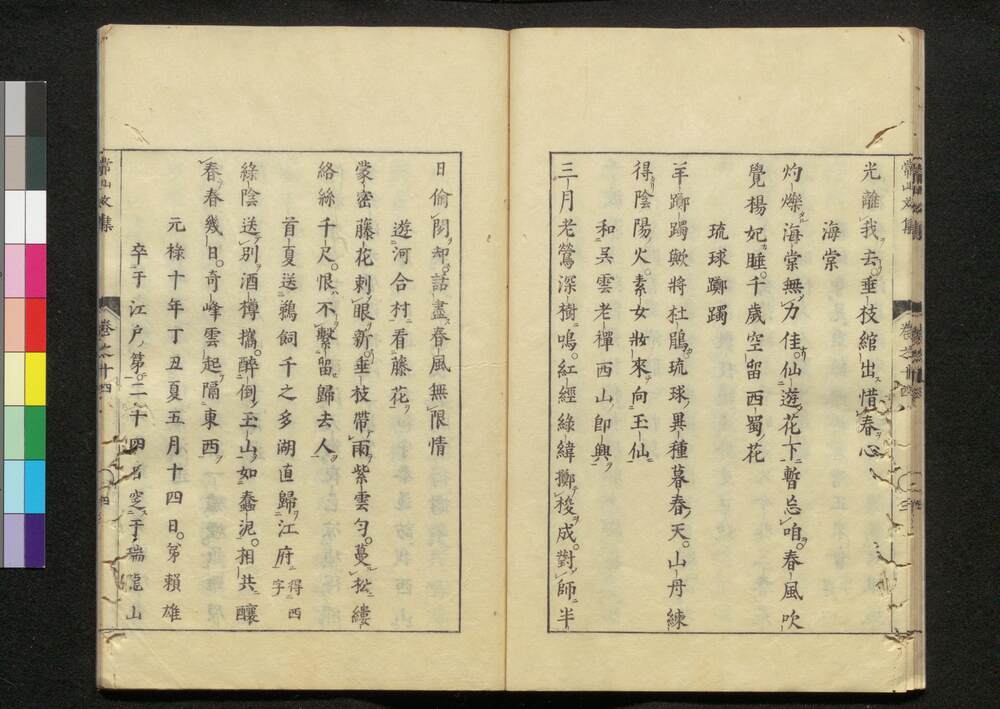 光離我去。垂枝綰出惜春心
海棠
灼爍海棠無力佳。仙遊花下暫忘咱。春風吹
覺楊妃睡。千歲空留西蜀花
琉球躑躅
羊躑躅歟將杜鵑。琉球異種暮春天。山丹練
得陰陽火。素女妝來向玉仙
和吳雲老禪西山即興
三月老鶯深樹鳴。紅經綠緯擲梭成。對師半
日偷閑却。話盡春風無限情
遊河合村看藤花
蒙密藤花刺眼新。垂枝帶雨紫雲勻。蔓松縷
絡絲千尺。恨不繫留歸去人
首夏送鵜飼千之多湖直歸江府 得西字
綠陰送別酒樽攜。醉倒玉山如蠢泥。相共釀
春春幾日。奇峰雲起隔東西
元祿十年丁丑夏五月十四日。弟賴雄
卒于江戶第。二十四日窆于瑞龍山
常山文集
卷之十四
常山文集
卷之十四
四